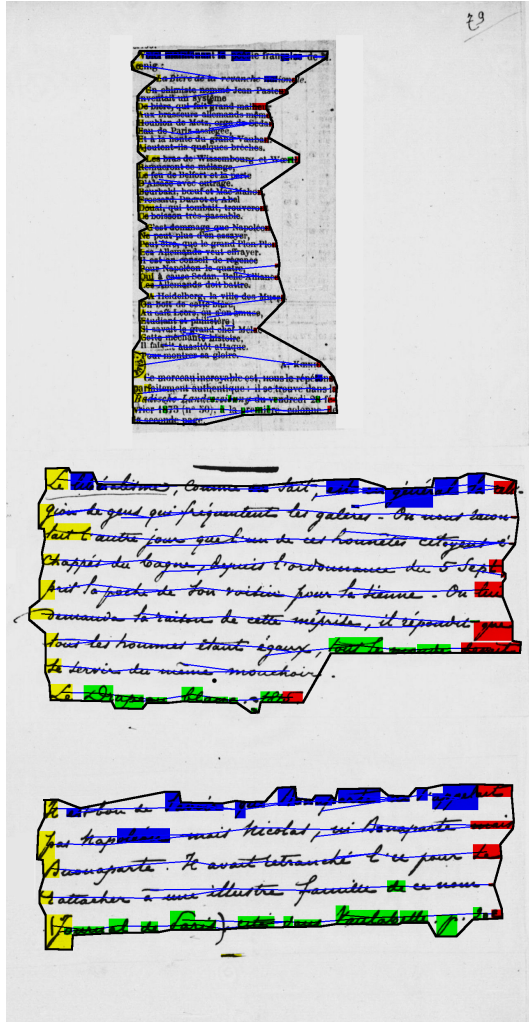 79
de M.
Kœnig :
La Bière de la revanche nationale.
Un chimiste nommé Jean Pasteur
Inventait un système
De bière, qui fait grand
Aux brasseurs allemands même
Houblon de Metz, orge de Sedan
Eau de Paris assiégée,
Et à la honte du grand Vauban
Ajoutent-ils quelques brèches.
Les bras de Wissembourg et Wœrth
Remueront ce mélange,
Le feu de Belfort et la perte
D'Alsace avec outrage.
Bourbaki, bœuf et Mac-Mahon
Frossard, Ducrot et Abel
Douai, qui tombait, trouveront
De boisson très-passable.
C'est dommage que Napoléon
Ne peut plus d'en essayer,
Peut-être, que le grand Plon-Plon
Les Allemands veut effrayer.
Il est au conseil de régence
Pour Napoléon le quatre,
Qui à cause Sedan, Belle-Alliance
Les Allemands doit battre.
A Heidelberg, la ville des Muses
On boit de cette bière,
Au café Leers, où s'en amuse,
Étudiant et philistère ;
Si savait le grand chef Mélac
Cette méchante histoire,
Il aussitôt attaque.
Pour montrer sa gloire.
Ce morceau incroyable est, nous le répétons
parfaitement authentique : il se trouve dans la
Badische Landeszeitung du vendredi 28 fé-
vrier 1873 (n° 50), à la première colonne de
la seconde page.
Le libéralisme, comme on sait, est en général la reli-
gion de gens qui fréquentent les galères. On nous racon-
tait l'autre jour que l'un de ces honnêtes citoyens é-
chappés du bagne, depuis l'ordonnance du 5 Sept.
prit la poche de son voisin pour la sienne. On lui
demanda la raison de cette méprise, il répondit que
tous les hommes étant égaux, tout le monde devait
se servir du même mouchoir.
Le Drapeau blanc,
Il est bon de que Bonaparte s'appelait
pas Napoléon mais Nicolas, ni Bonaparte mais
Buonaparte. Il avait retranché l'u pour se
rattacher à une illustre famille de ce nom
(Journal de Paris), cité dans Vaulabelle. p.